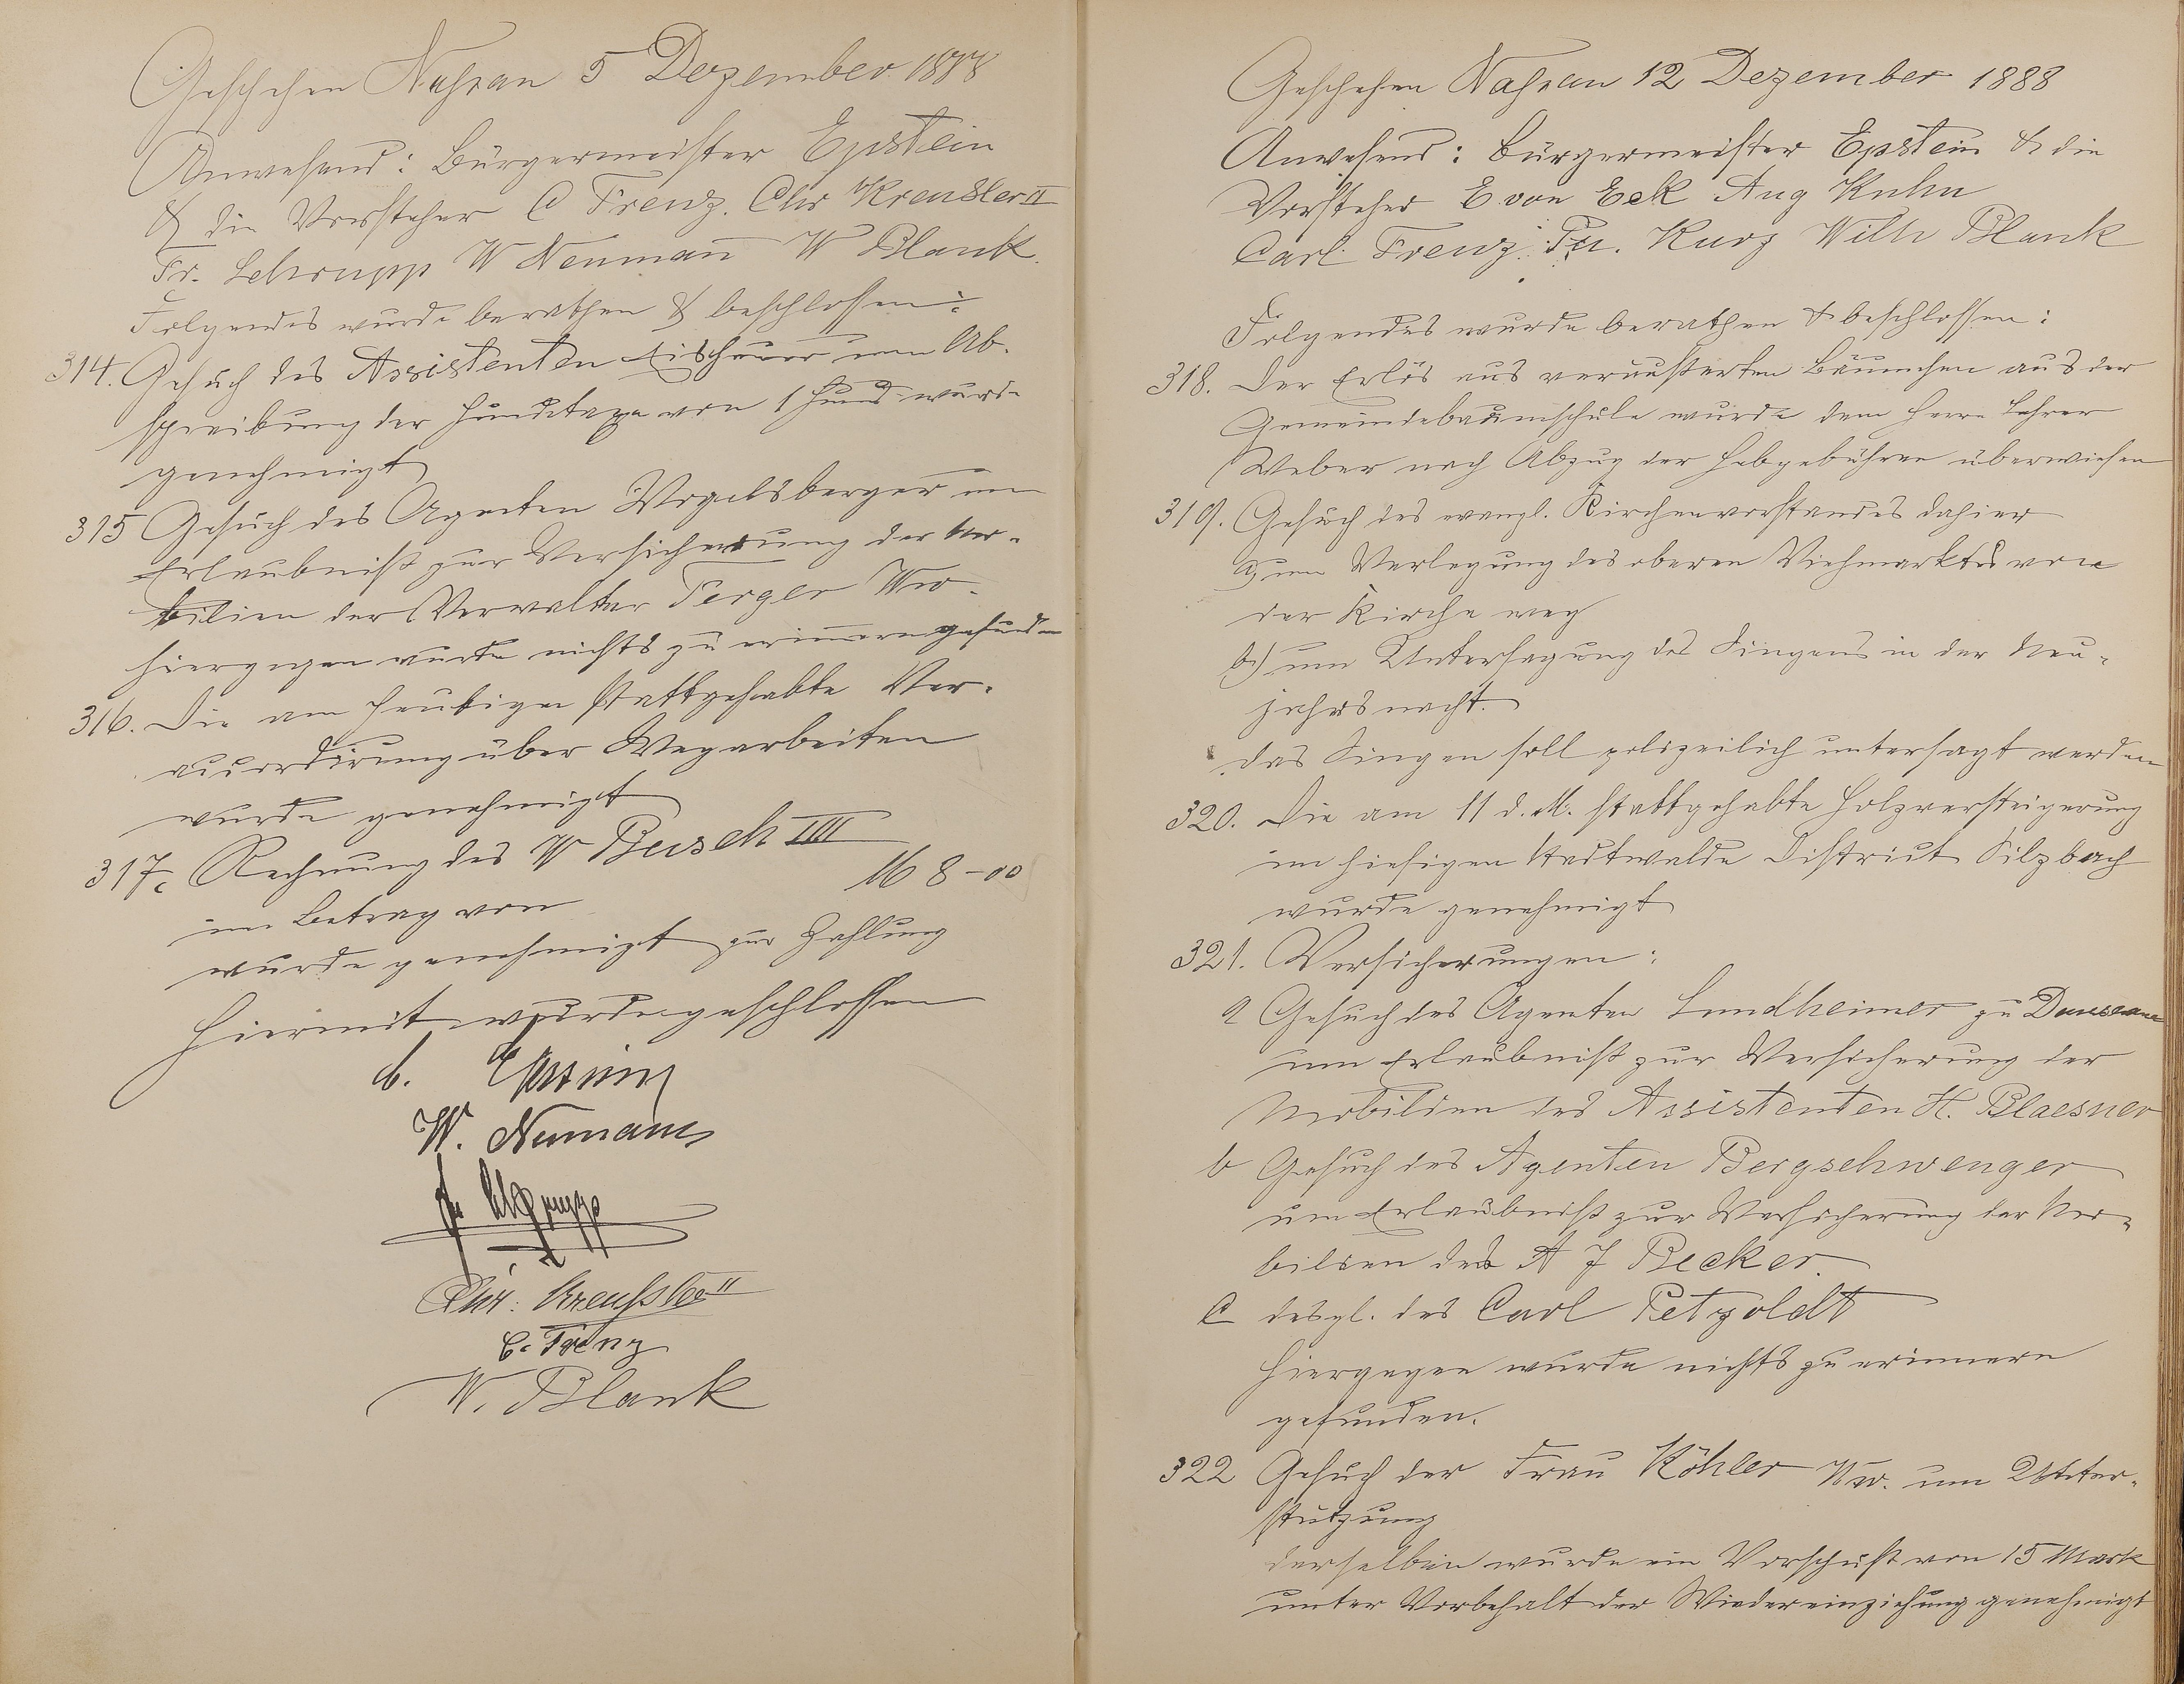 Geschehen Nassau 5 Dezember 1888
Anwesend: Bürgermeister Epstein
& die Vorsteher C Trenz. Chr Kreusler II
Fr. Schrupp W Neumann W Blank.
Folgendes wurde berathen & beschlossen:
314. Gesuch des Assistenten um Ab-
schreibung der Hundetaxe von 1 Hund wurde
genehmigt
315 Gesuch des Agenten Vogelsberger um
Erlaubniß zur Versicherung der Mo-
bilien der Verwalter Ferger Ww.
hiergegen wurde nichts zu erinnern gefunden
316. Die am heutigen stattgehabte Ver-
accordirung über Wegarbeiten
wurde genehmigt
317. Rechnung des W Busch III
im Betrag von M 8-00
wurde genehmigt zur Zahlung
Hiermit wurde geschlossen
Epstein
W. Neumann
Fr Schrupp
Chr. Kreußler II
C. Trenz
W. Blank
Geschehen Nassau 12 Dezember 1888
Anwesend: Bürgermeister Epstein & die
Vorsteher E. von Eck Aug Kuhn
Carl Trenz. Kurz Wilh Blank
Folgendes wurde berathen & beschlossen:
318. Der Erlös aus veräußerten Bäumchen aus der
Gemeindebaumschule wurde dem Herrn Lehrer
Weber nach Abzug der Hebgebühren überwiesen
319. Gesuch des evangl. Kirchenvorstandes dahier
a) um Verlegung des oberen Viehmarktes von
der Kirche weg
b) um Untersagung des Singens in der Neu-
jahrsnacht.
das Singen soll polizeilich untersagt werden
320. Die am 11 d. M. stattgehabte Holzversteigerung
im hiesigen Stadtwalde District Silzbach
wurde genehmigt
321. Versicherungen:
a Gesuch des Agenten Landheimer zu
um Erlaubniß zur Versicherung der
Mobilien des Assistenten H. Blaesner
b Gesuch des Agenten Bergschwenger
um Erlaubniß zur Versicherung der Mo-
bilien des A J Becker.
c desgl. des Carl Petzoldt
hiergegen wurde nichts zu erinnern
gefunden.
322 Gesuch der Frau Köhler Ww. um Unter-
stützung
derselben wurde ein Vorschuß von 15 Mark
unter Vorbehalt der Wiedereinziehung genehmigt